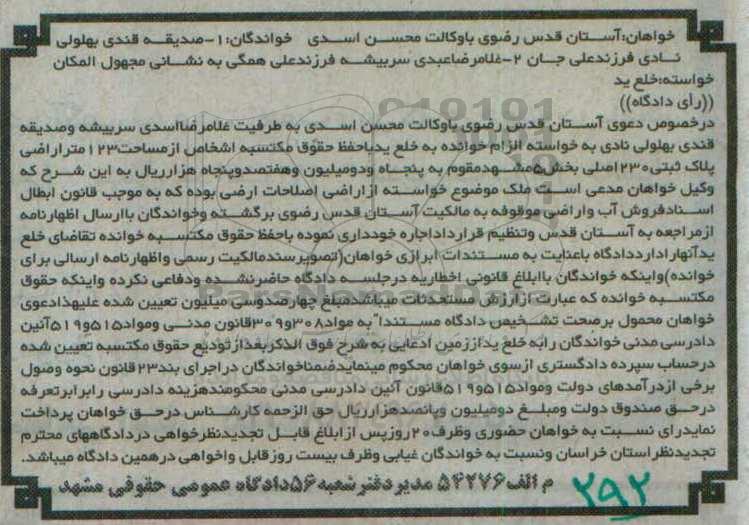 خواهان:آستان قدس رضوی باوکالت محسن اسدی خواندگان:1-صدیقه قندی بهلولی
نادی فرزندعلی جان 2-غلامرضاعبدی سربیشه فرزندعلی همگی به نشانی مجهول المکان
خواسته:خلع ید
((رأی دادگاه))
درخصوص دعوی آستان قدس رضوی باوکالت محسن اسدی به طرفیت غلامرضااسدی سربیشه وصدیقه
قندی بهلولی نادی به خواسته الزام خوانده به خلع یدباحفظ حقوق مکتسبه اشخاص ازمساحت123متراراضی
پلاک ثبتی230اصلی بخش5مشهدمقوم به پنجاه ودومیلیون وهفتصدوپنجاه هزارریال به این شرح که
وکیل خواهان مدعی است ملک موضوع خواسته ازاراضی اصلاحات ارضی بوده که به موجب قانون ابطال
اسنادفروش آب واراضی موقوفه به مالکیت آستان قدس رضوی برگشته وخواندگان باارسال اظهارنامه
ازمراجعه به آستان قدس وتنظیم قرارداداجاره خودداری نموده باحفظ حقوق مکتسبه خوانده تقاضای خلع
یدآنهاراارددادگاه باعنایت به مستندات ابرازی خواهان(تصویرسندمالکیت رسمی واظهارنامه ارسالی برای
خوانده)واینکه خواندگان باابلاغ قانونی اخطاریه درجلسه دادگاه حاضرنشده ودفاعی نکرده واینکه حقوق
مکتسبه خوانده که عبارت ازارزش مستحدثات میباشدمبلغ چهارصدوسی میلیون تعیین شده علیهذادعوی
خواهان محمول برصحت تشخیص دادگاه مستندا"به مواد308و309قانون مدنی ومواد515و519آئین
دادرسی مدنی خواندگان رابه خلع یداززمین ادعایی به شرح فوق الذکربعدازتودیع حقوق مکتسبه تعیین شده
درحساب سپرده دادگستری ازسوی خواهان محکوم مینمایدضمناخواندگان دراجرای بند23قانون نحوه وصول
برخی ازدرآمدهای دولت ومواد515و519قانون آئین دادرسی مدنی محکومندهزینه دادرسی رابرابرتعرفه
درحق صندوق دولت ومبلغ دومیلیون وپانصدهزارریال حق الزحمه کارشناس درحق خواهان پرداخت
نمایدرای نسبت به خواهان حضوری وظرف20روزپس ازابلاغ قابل تجدیدنظرخواهی دردادگاههای محترم
تجدیدنظراستان خراسان ونسبت به خواندگان غیابی وظرف بیست روزقابل واخواهی درهمین دادگاه میباشد.
م الف54276 مدیردفترشعبه56دادگاه عمومی حقوقی مشهد
292